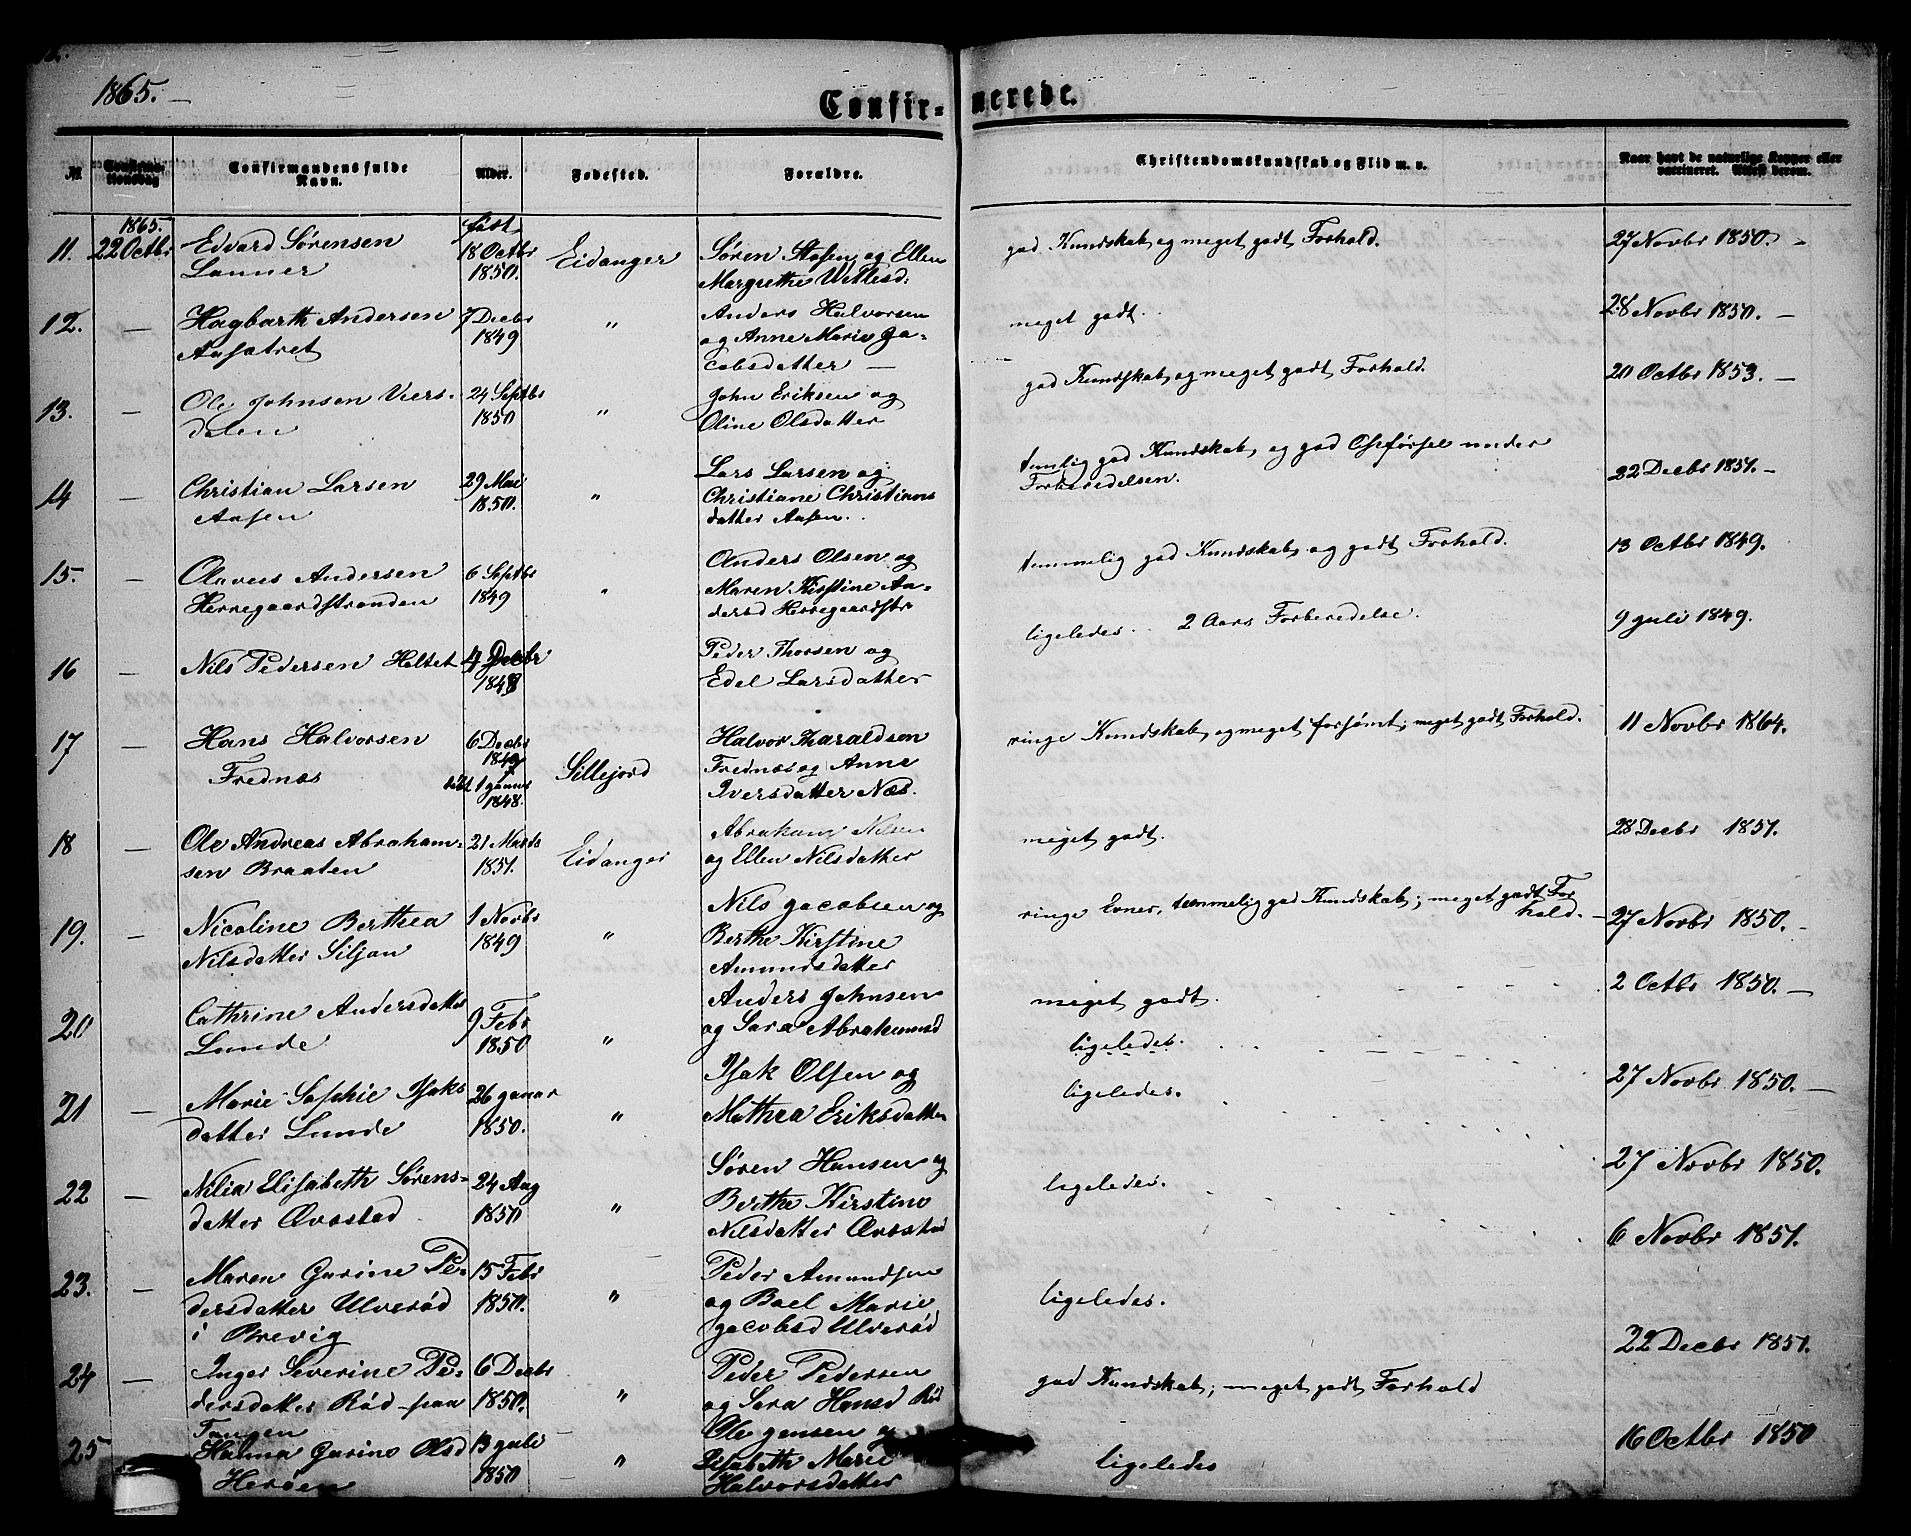 1865.
Confir-
merede.
№
Confirma-
tionsdag
Confirmandens fulde
Navn.
Alder.
Fødested.
Forældre.
Christendomskundskab og Flid m. v.
Naar havt de naturlige Kopper eller
vaccineret. Attest derom.
1865.
født
11. 22 Octbr Edvard Sørensen 18 Octbr Eidanger Søren Stosen og Ellen god Kundskab og meget godt Forhold. 27 Novbr 1850. —
Lanner 1850. Margrethe Wettesd:
12. — Hagbarth Andersen 7 Decbr " Anders Halvorsen meget godt. 28 Novbr 1850. —
Aasatret 1849 og Anne Marie Ja-
cobsdatter —
13. — Ole Johnsen Viers- 24 Septbr " John Eriksen og god Kundskab og meget godt Forhold. 20 Octbr 1853. —
dalen 1850 Oline Olsdatter
14 — Christian Larsen 29 Mai " Lars Larsen og temlig god Kundskab, og god Opførsel under 22 Decbr 1851. —
Aasen 1850. Christiane Christians Forberedelsen.
datter Aasen.
15. — Olaves Andersen 6 Septbr " Anders Olsen og temmelig god Kundskab, og godt Forhold. 13 Octbr 1849.
Herregaardstranden 1849 Maren Kirstine An-
dersd Herregaardstr
16 — Nils Pedersen Heltet 4 Decbr Peder Thorsen og ligeledes. 2 Aars Forberedelse. 9 Juli 1849.
1848 Edel Larsdatter
17 — Hans Halvorsen 6 Decbr Halvor Tharaldsen ringe Kundskab, og meget forsømt; meget godt Forhold. 11 Novbr 1864.
Frednæs 1849 Sillejord Frednæs og Anne
1 Januar Iversdatter Næs.
1848.
18 — Ole Andreas Abraham- 21 Marts Eidanger Abraham Nilsen meget godt. 28 Decbr 1851.
sen Braaten 1851. og Ellen Nilsdatter
19. — Nicoline Berthea 1 Novbr " Nils Jacobsen og ringe Evner, temmelig god Kundskab; meget godt For
hold. — 27 Novbr 1850.
Nilsdatter Siljan 1849 Berthe Kirstine
Amundsdatter
20 Cathrine Andersdatter 9 Febr " Anders Johnsen meget godt. 2 Octbr 1850. —
Lunde 1850 og Sara Abrahamsd ligeledes.
21 — Marie Sophie Isaks 26 Januar " Isak Olsen og ligeledes. 27 Novbr 1850. —
datter Lunde 1850. Mathea Eriksdatter
22 — Nilia Elisabeth Sørens- 24 Aug " Søren Hansen og ligeledes. 27 Novbr 1850.
datter Ørstad 1850 Berthe Kirstine
Nilsdatter Ørstad
6 Novbr 1851.
23. — Maren Gurine Pe- 15 Febr " Peder Amundsen ligeledes.
dersdatter Ulverød 1850. og Boel Marie
i Brevig Jacobsd Ulverød
22 Decbr 1851.
24 — Inger Severine Pe- 6 Decbr " Peder Pedersen god Kundskab; meget godt Forhold
dersdatter Rød paa 1850. og Sara Hansd Rød
Tangen
25 Halma Gurine Olsd 13 Juli " Ole Jensen og ligeledes 16 Octbr 1850
Herøen 1850 — Elisabeth Marie
Halvorsdatter